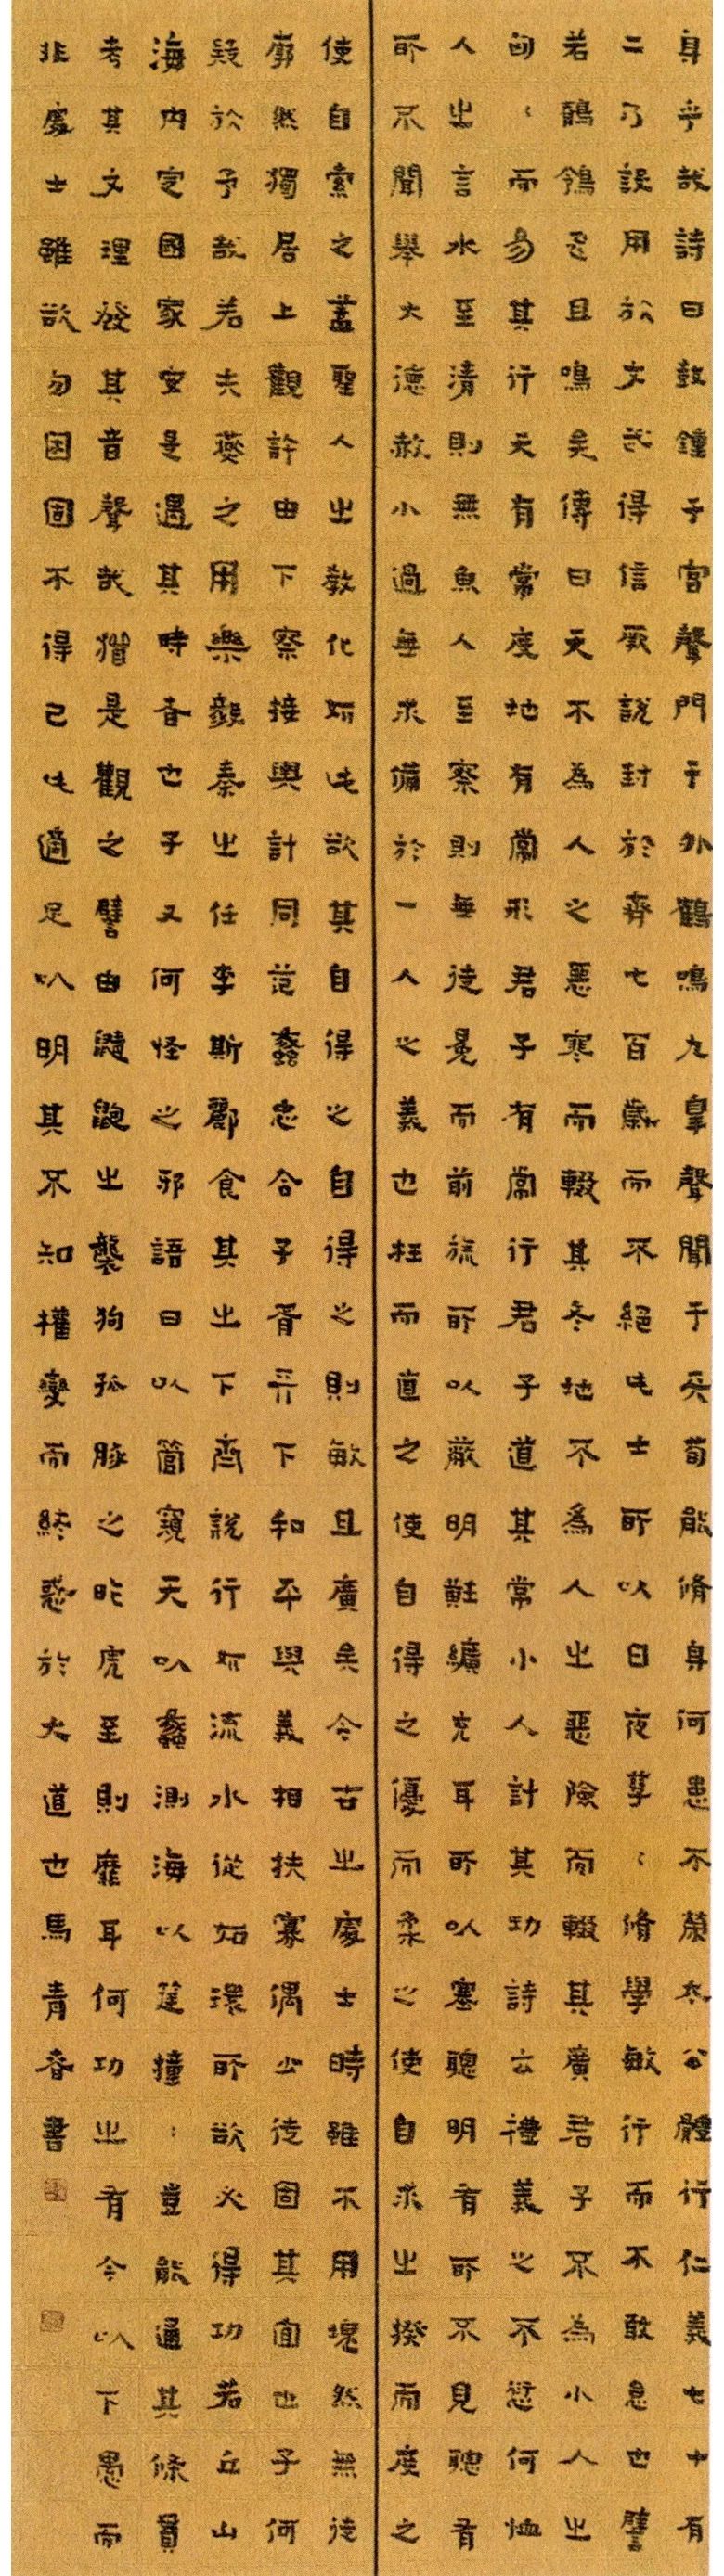 身乎哉詩曰鼓鐘于宮聲門于外鶴鳴九皋聲聞于天苟能脩身何患不榮太公體行仁義七十有
二乃設用於文武得信厥說封於齊七百歲而不絕此士所以日夜孳〻脩學敏行而不敢怠也譬
若鶺鴒飛且鳴矣傳曰天不為人之惡寒而輟其冬地不為人之惡險而輟其廣君子不為小人之
匈〻而易其行天有常度地有常形君子有常行君子道其常小人計其功詩云禮義之不愆何恤
人之言水至清則無魚人至察則無徒冕而前旒所以蔽明黈纊充耳所以塞聰明有所不見聽有
所不聞舉大德赦小過無求備於一人之義也枉而直之使自得之優而柔之使自求之揆而度之
使自索之蓋聖人之教化如此欲其自得之自得之則敏且廣矣今古之處士時雖不用塊然無徒
廓然獨居上觀許由下察接輿計同范蠡忠合子胥天下和平與義相扶寡偶少徒固其宜也子何
疑於予哉若夫燕之用樂毅秦之任李斯酈食其之下齊說行如流水從如環所欲必得功若丘山
海內定國家安是遇其時者也子又何怪之邪語曰以管窺天以蠡測海以筳撞〻豈能通其條貫
考其文理發其音聲哉猶是觀之譬由鼱鼩之襲狗孤豚之咋虎至則靡耳何功之有今以下愚而
非處士雖欲勿困固不得已此適足以明其不知權變而終惑於大道也馬青春書